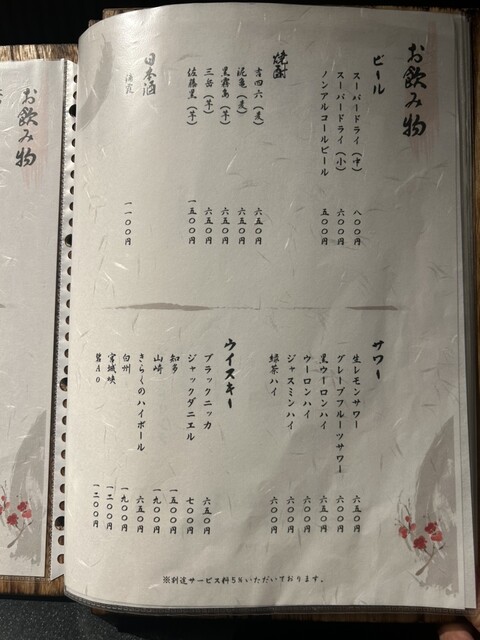 お飲み物
ビール
スーパードライ（中） 八〇〇円
スーパードライ（小） 六〇〇円
ノンアルコールビール 五〇〇円
焼酎
吉四六（麦） 六五〇円
泥亀（麦） 六五〇円
黒霧島（芋） 六五〇円
三岳（芋） 六五〇円
佐藤黒（芋） 一五〇〇円
日本酒
一一〇〇円
サワー
生レモンサワー 六五〇円
グレープフルーツサワー 六〇〇円
黒ウーロンハイ 六五〇円
ウーロンハイ 六〇〇円
ジャスミンハイ 六〇〇円
緑茶ハイ 六〇〇円
ウイスキー
ブラックニッカ 六五〇円
ジャックダニエル 七〇〇円
知多 一五〇〇円
山崎 一九〇〇円
きらくのハイボール 六五〇円
白州 一九〇〇円
宮城峡 一二〇〇円
碧Ao 一二〇〇円
※別途サービス料5%いただいております。
お飲み物